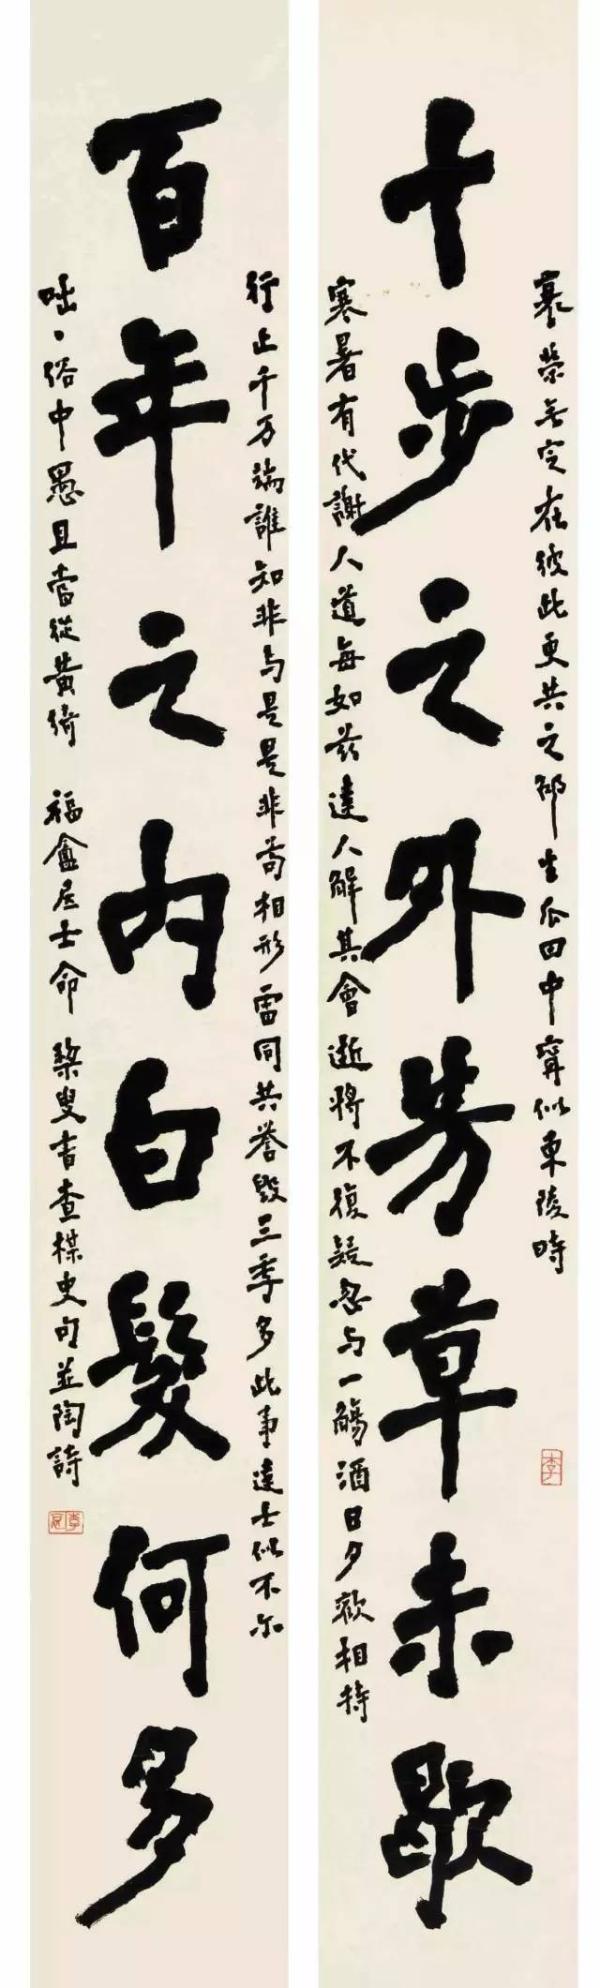 衰榮无定在彼此更共之邵生瓜田中寧似東陵時
李
十步之外芳草未歇
寒暑有代謝人道每如茲達人解其會逝將不復疑忽与一觴酒日夕歡相持
行止千万端誰知非与是是非苟相形雷同共誉毁三季多此事達士似不尔
百年之内白髮何多
咄〻俗中愚且當從黃綺 福盦居士命 叟書查楳史句並陶詩